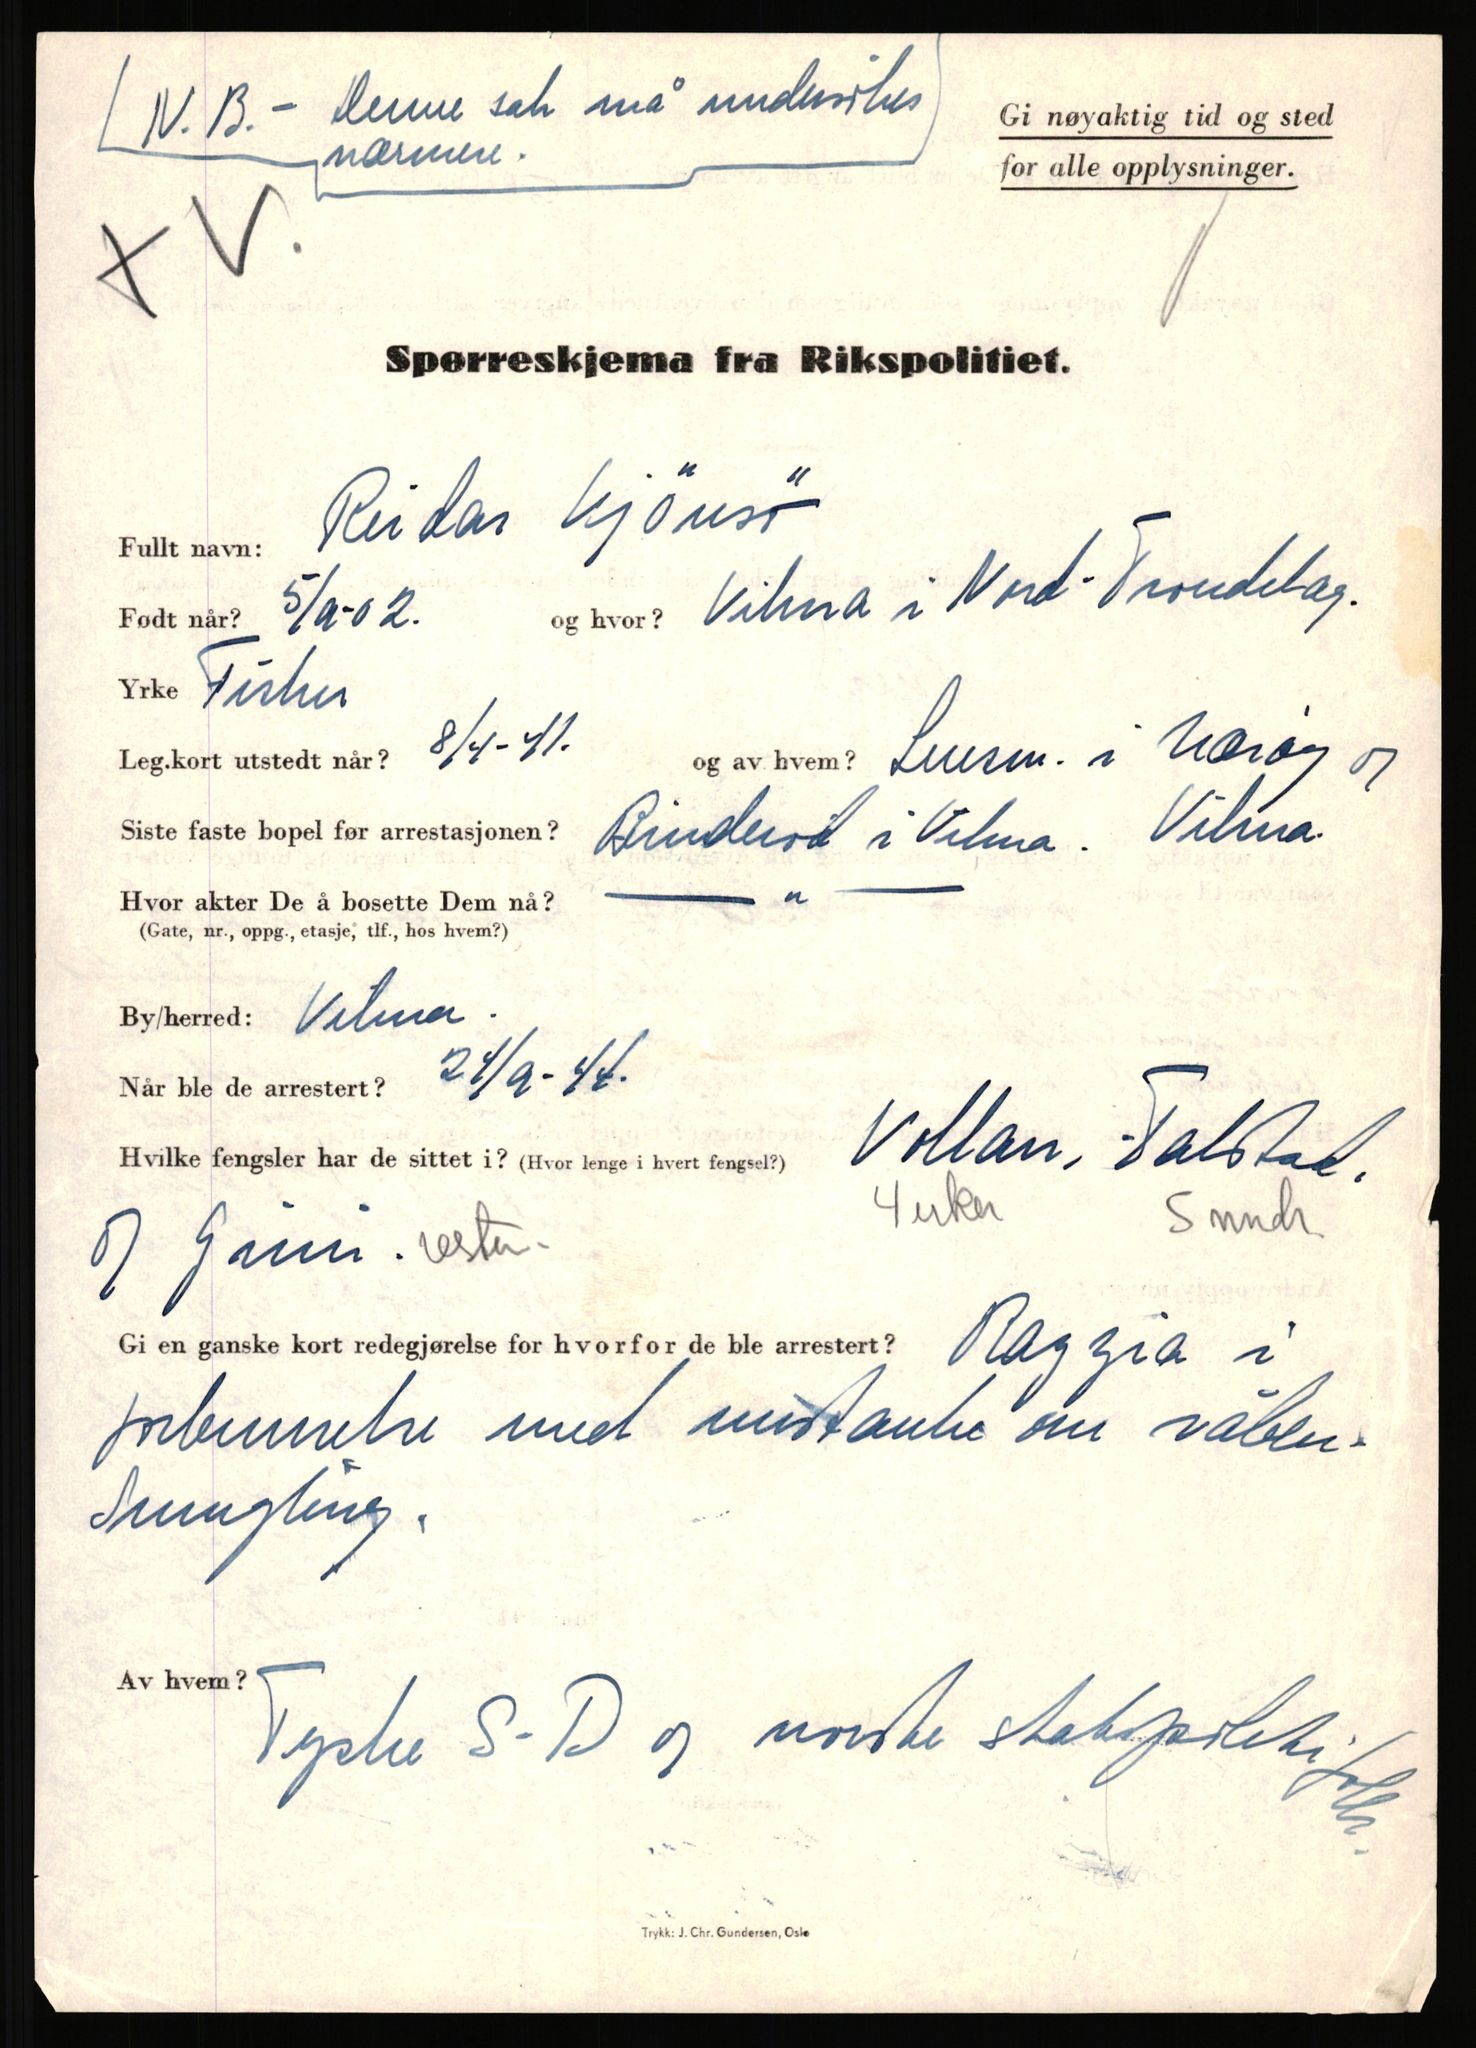 N.B. - Denne sak må undersökes
nærmere.
Gi nøyaktig tid og sted
for alle opplysninger.
+ V.
Spørreskjema fra Rikspolitiet.
Fullt navn: Reidar Kjönsö
Født når? 5/9-02. og hvor? Vikna i Nord-Trondelag.
Yrke Fisker
Leg.kort utstedt når? 8/4-41. og av hvem? Lensm. i Nærøy og
Vikna.
Siste faste bopel før arrestasjonen? i Vikna.
Hvor akter De å bosette Dem nå? — " —
(Gate, nr., oppg., etasje, tlf., hos hvem?)
By/herred: Vikna.
Når ble de arrestert? 24/9-44.
Hvilke fengsler har de sittet i? (Hvor lenge i hvert fengsel?) Vollan, Falstad,
4 uker 5 mndr
og Grini. resten.
Gi en ganske kort redegjørelse for hvorfor de ble arrestert? Razzia i
forbinnelse med mistanke om våben-
smugling.
Av hvem? Tyske S-D og norske statspoliti folk.
Trykk: J. Chr. Gundersen, Oslo